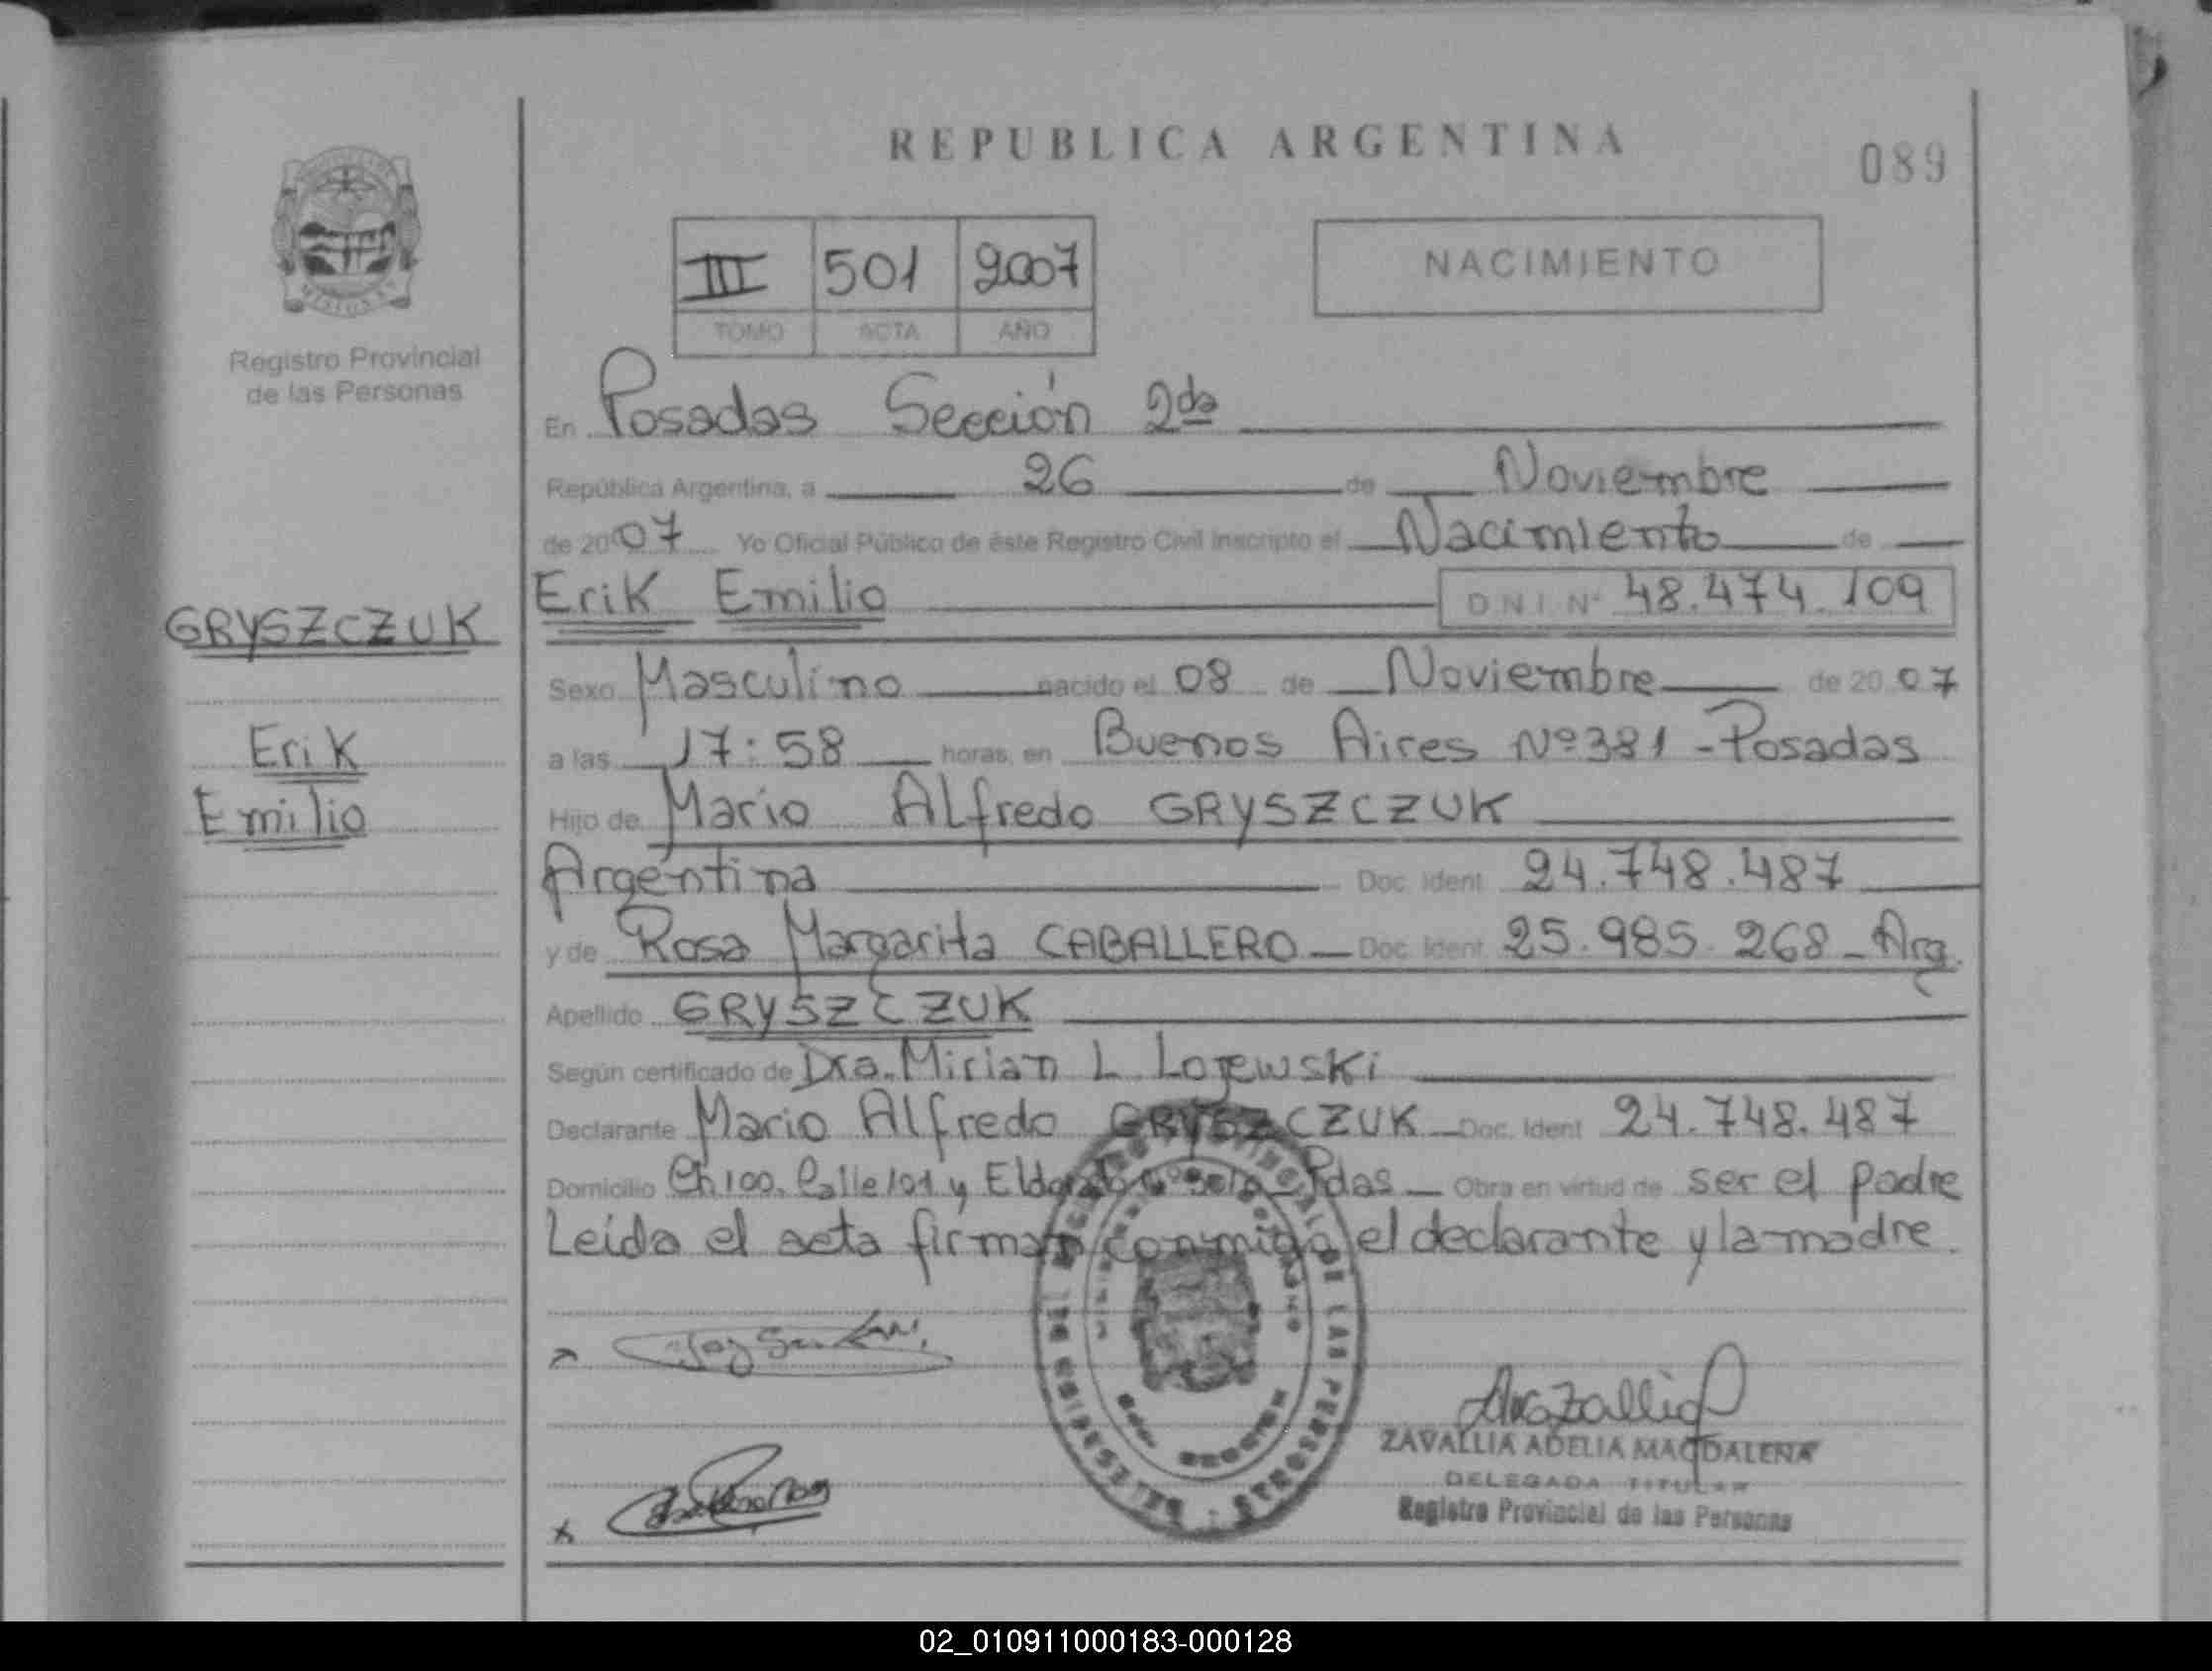 REPUBLICA ARGENTINA
089
III 501 2007
TOMO ACTA AÑO
NACIMIENTO
Registro Provincial
de las Personas
En Posadas Sección 2da
República Argentina, a 26 de Noviembre
de 2007 Yo Oficial Público de éste Registro Civil Inscripto el Nacimiento de
GRYSZCZUK
Erik Emilio DNI Nº 48.474.109
Sexo Masculino nacido el 08 de Noviembre de 2007
Erik
a las 17:58 horas, en Buenos Aires Nº 381 - Posadas
Emilio
Hijo de Mario Alfredo GRYSZCZUK
Argentina Doc. Ident. 24.748.487
y de Rosa Margarita CABALLERO Doc. Ident. 25.985.268 - Arg.
Apellido GRYSZCZUK
Según certificado de Dra. Mirian L. Lojewski
Declarante Mario Alfredo GRYSZCZUK Doc. Ident. 24.748.487
Domicilio Ch 100. Calle 101 y Pdas - Obra en virtud de ser el padre
Leída el acta firman conmigo el declarante y la madre.
ZAVALLIA ADELIA MAGDALENA
DELEGADA TITULAR
Registro Provincial de las Personas
02_010911000183-000128